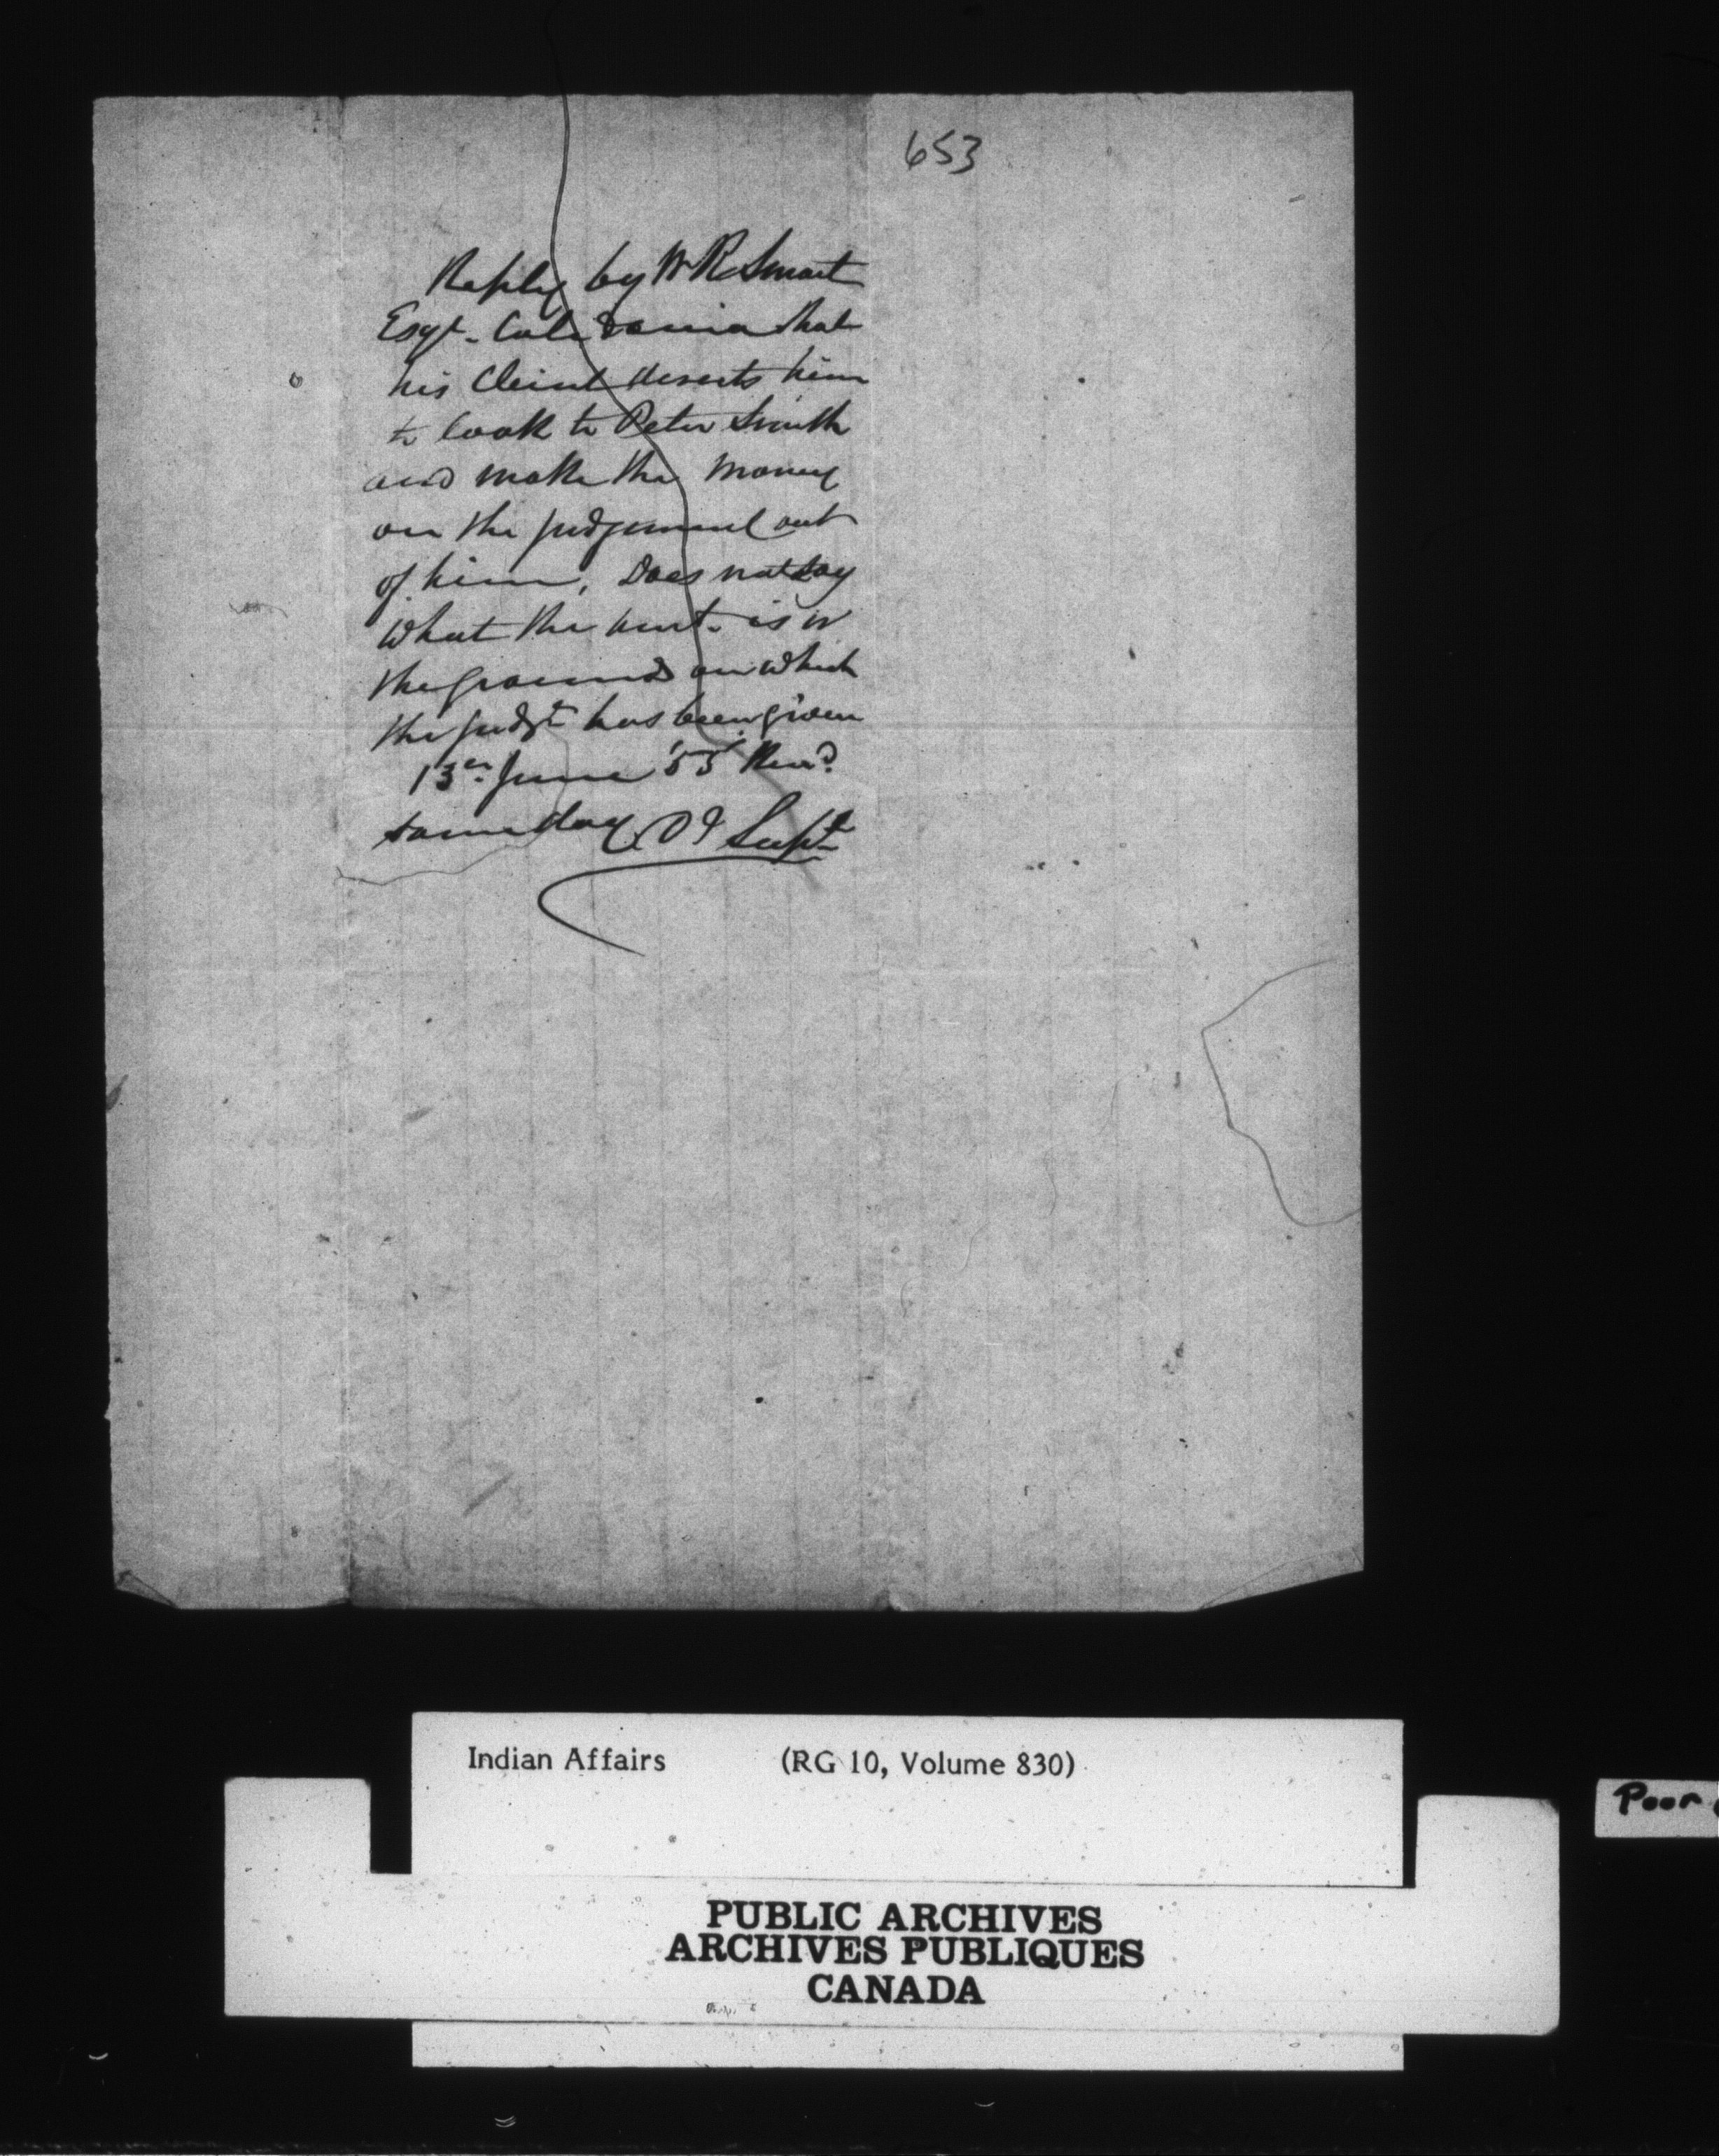 653
Reply by W R Smart
Esqr. Caledonia that
his Cleint directs him
to look to Peter Smith
and make the money
on the judgement out
of him, Does not say
what the amt. is or
the grounds on which
the judgt has been given
13th June '55 Recd.
same day. Supt
Indian Affairs (RG 10, Volume 830)
Poor
PUBLIC ARCHIVES
ARCHIVES PUBLIQUES
CANADA